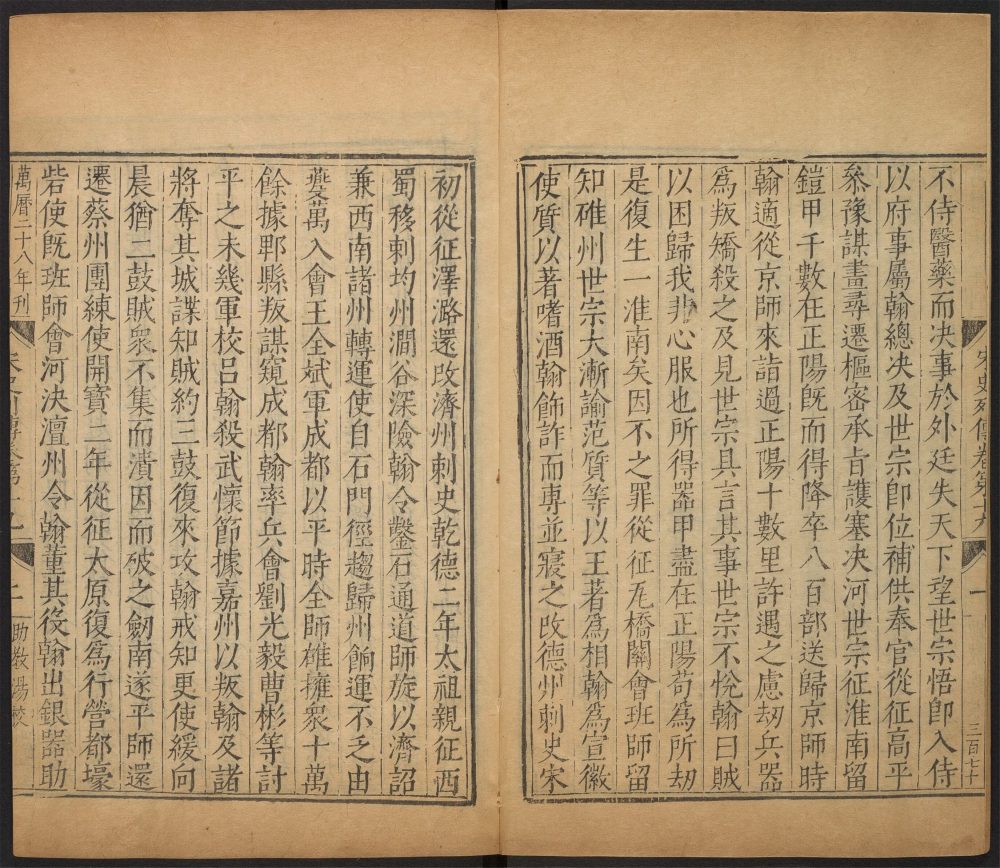 不侍醫藥而决事於外廷失天下望世宗悟卽入侍
以府事屬翰總决及世宗卽位補供奉官從征高平
叅豫謀畫尋遷樞密承旨護塞决河世宗征淮南留
鎧甲千數在正陽既而得降卒八百部送歸京師時
翰適從京師來詣過正陽十數里許遇之慮刼兵器
爲叛矯殺之及見世宗具言其事世宗不悅翰曰賊
以困歸我非心服也所得器甲盡在正陽苟爲所刼
是復生一淮南矣因不之罪從征瓦橋關會班師留
知雄州世宗大漸諭范質等以王著爲相翰爲宣徽
使質以著嗜酒翰飾詐而專並寢之改德州刺史宋
宋史列傳卷第十九
一
三百七十
初從征澤潞還改濟州刺史乾德二年太祖親征西
蜀移刺均州澗谷深險翰令鑿石通道師旋以濟詔
兼西南諸州轉運使自石門徑趨歸州餉運不乏由
夔萬入會王全斌軍成都以平時全師雄擁衆十萬
餘據郫縣叛謀窺成都翰率兵會劉光毅曹彬等討
平之未幾軍校呂翰殺武懷節據嘉州以叛翰及諸
將奪其城諜知賊約三鼓復來攻翰戒知更使緩向
晨猶二鼓賊衆不集而潰因而破之劒南遂平師還
遷蔡州團練使開寶二年從征太原復爲行營都壕
砦使既班師會河决澶州令翰董其役翰出銀器助
萬曆二十八年刊
宋史列傳卷第十九
二
助教楊 校